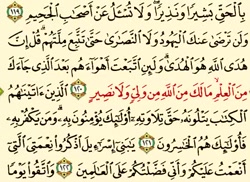 بِالْحَقِّ بَشِيرًا وَنَذِيرًا ۖ وَلَا تُسْأَلُ عَنْ أَصْحَابِ الْجَحِيمِ ﴿١١٩﴾
وَلَن تَرْضَىٰ عَنكَ الْيَهُودُ وَلَا النَّصَارَىٰ حَتَّىٰ تَتَّبِعَ مِلَّتَهُمْ ۗ قُلْ إِنَّ
هُدَى اللَّهِ هُوَ الْهُدَىٰ ۗ وَلَئِنِ اتَّبَعْتَ أَهْوَاءَهُم بَعْدَ الَّذِي جَاءَكَ
مِنَ الْعِلْمِ ۙ مَا لَكَ مِنَ اللَّهِ مِن وَلِيٍّ وَلَا نَصِيرٍ ﴿١٢٠﴾ الَّذِينَ آتَيْنَاهُمُ
الْكِتَابَ يَتْلُونَهُ حَقَّ تِلَاوَتِهِ أُولَٰئِكَ يُؤْمِنُونَ بِهِ ۗ وَمَن يَكْفُرْ بِهِ
فَأُولَٰئِكَ هُمُ الْخَاسِرُونَ ﴿١٢١﴾ يَا بَنِي إِسْرَائِيلَ اذْكُرُوا نِعْمَتِيَ الَّتِي
أَنْعَمْتُ عَلَيْكُمْ وَأَنِّي فَضَّلْتُكُمْ عَلَى الْعَالَمِينَ ﴿١٢٢﴾ وَاتَّقُوا يَوْمًا